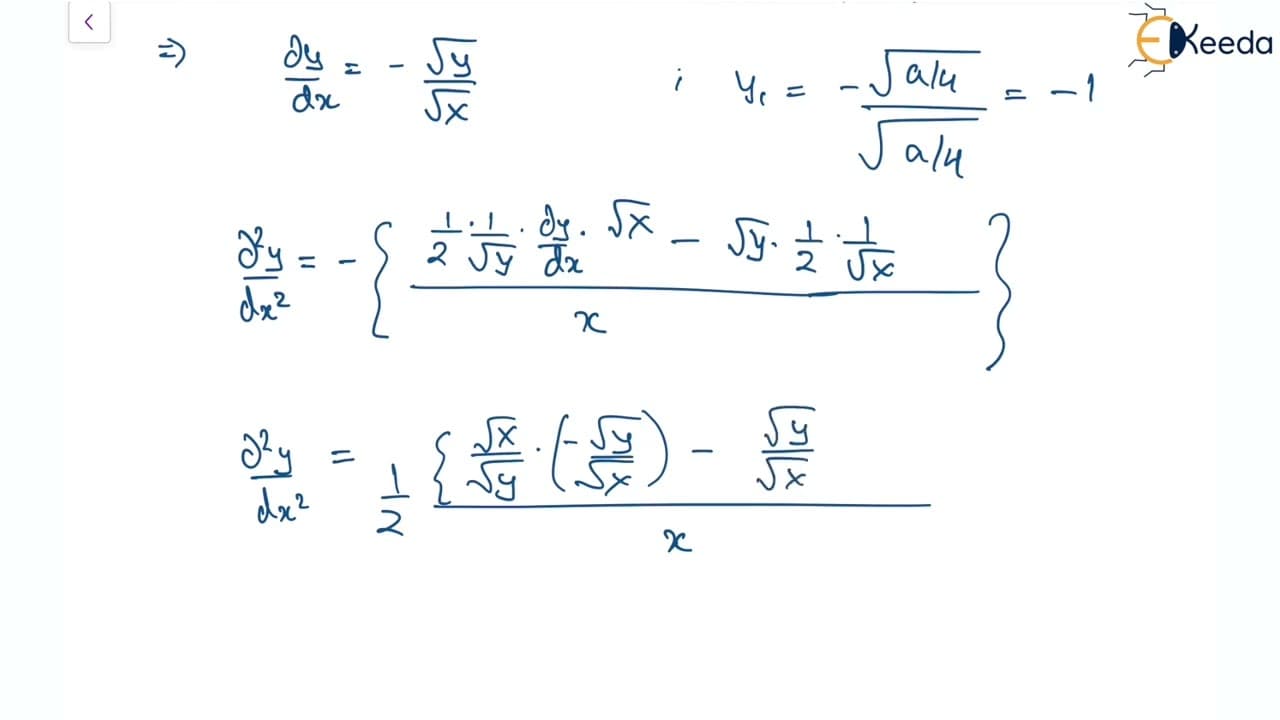 EKeeda
⇒ ∂y/dx = - √y/√x ; y₁ = - √a/4 / √a/4 = -1
∂²y/dx² = - { (1/2 · 1/√y · ∂y/dx · √x - √y · 1/2 · 1/√x) / x }
∂²y/dx² = 1/2 { (√x/√y · (- √y/√x) - √y/√x) / x